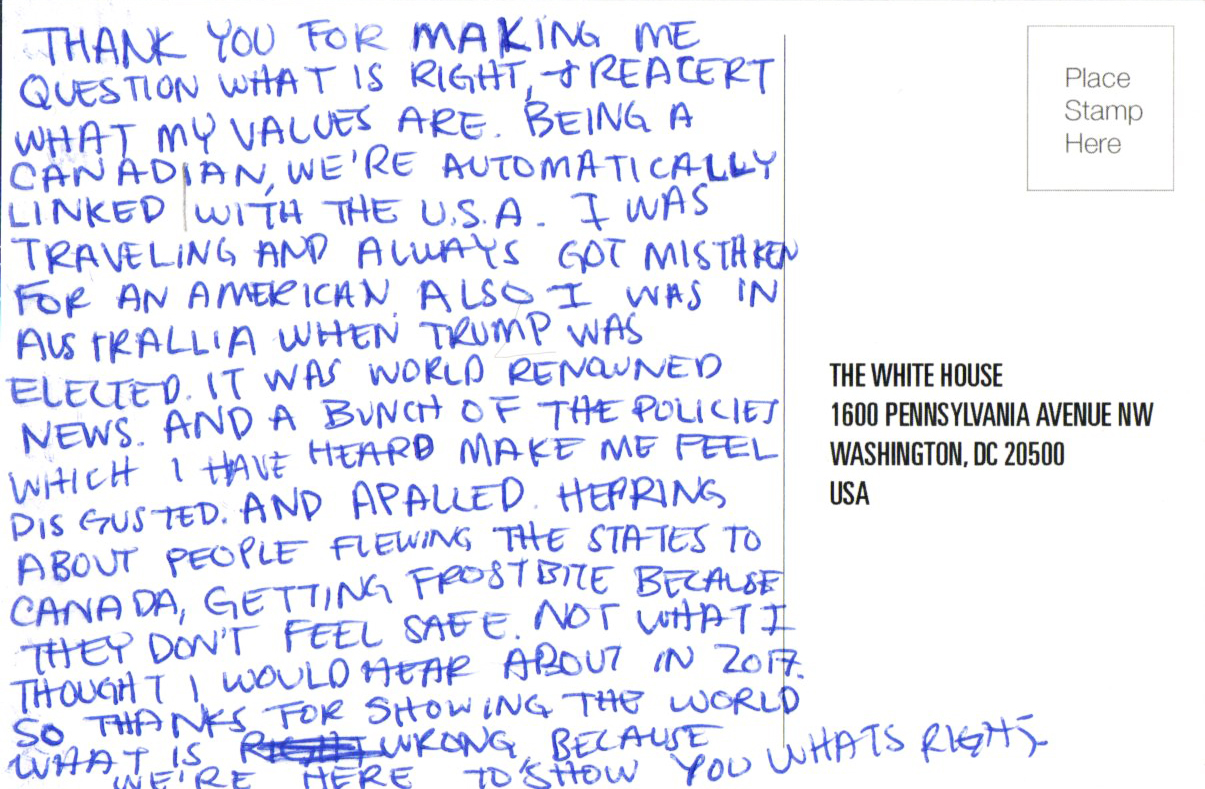 THANK YOU FOR MAKING ME
QUESTION WHAT IS RIGHT, & REACERT
WHAT MY VALUES ARE. BEING A
CANADIAN, WE'RE AUTOMATICALLY
LINKED WITH THE U.S.A. I WAS
TRAVELING AND ALWAYS GOT MISTAKEN
FOR AN AMERICAN. ALSO I WAS IN
AUSTRALLIA WHEN TRUMP WAS
ELECTED. IT WAS WORLD RENOWNED
NEWS. AND A BUNCH OF THE POLICIES
WHICH I HAVE HEARD MAKE ME FEEL
DISGUSTED. AND APALLED. HEARING
ABOUT PEOPLE FLEWING THE STATES TO
CANADA, GETTING FROSTBITE BECAUSE
THEY DON'T FEEL SAFE. NOT WHAT I
THOUGHT I WOULD HEAR ABOUT IN 2017.
SO THANKS FOR SHOWING THE WORLD
WHAT IS RIGHT WRONG, BECAUSE
WE'RE HERE TO SHOW YOU WHATS RIGHT
Place
Stamp
Here
THE WHITE HOUSE
1600 PENNSYLVANIA AVENUE NW
WASHINGTON, DC 20500
USA